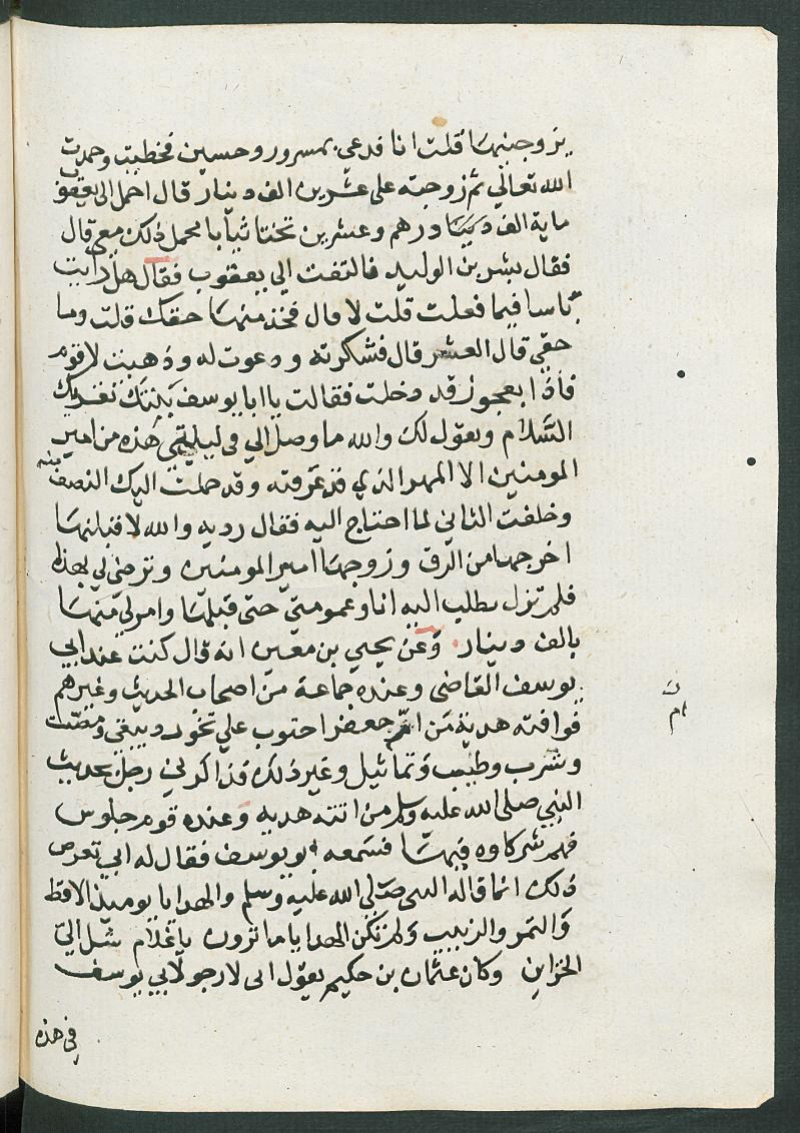 يزوجنيها قلت انا فدعي بمسرور وحسين فخطبت وحمدت
الله تعالي ثم زوجته على عشرين الف دينار قال احمل الى يعقوب
ماية الف درهم وعشرين تختا ثيابا محمل ذلك معي قال
فقال بشر بن الوليد فالتفت الي يعقوب فقال هل رايت
باسا فيما فعلت قلت لا قال فخذ منها حقك قلت وما
حقي قال العشر قال فشكرته ودعوت له وذهبت لاقوم
فاذا بعجوز قد دخلت فقالت يا ابا يوسف بنتك تقريك
السلام وتقول لك والله ما وصل الي في ليلتي هذه من امير
المومنين الا المهر الذي قد عرفته وقد حملت اليك النصف منه
وخلفت الثاني لما احتاج اليه فقال رديه والله لا قبلتها
اخرجتها من الرق وزوجتها امير المومنين وترضى لي بهذا
فلم تزل يطلب اليه انا وعمومتي حتى قبلها وامر لي منها
بالف دينار وعن يحيي بن معين انه قال كنت عند ابي
يوسف القاضى وعنده جماعة من اصحاب الحديث وغيرهم
فوافته هدية من ام جعفر احتوت علي تخوت ديبقي ومصمت
وشرب وطيب وتماثيل وغير ذلك فذاكرني رجل بحديث
النبي صلى الله عليه وسلم من اتته هديه وعنده قوم جلوس
فهم شركاوه فيها فسمعه ابو يوسف فقال له ابي تعرض
ذلك انما قاله النبى صلى الله عليه وسلم والهدايا يوميذ الاقط
والتمر والزبيب ولم تكن الهدايا ما ترون يا غلام شل الي
الخزاين وكان عثمان بن حكيم يقول انى لارجو لابي يوسف
في هذه